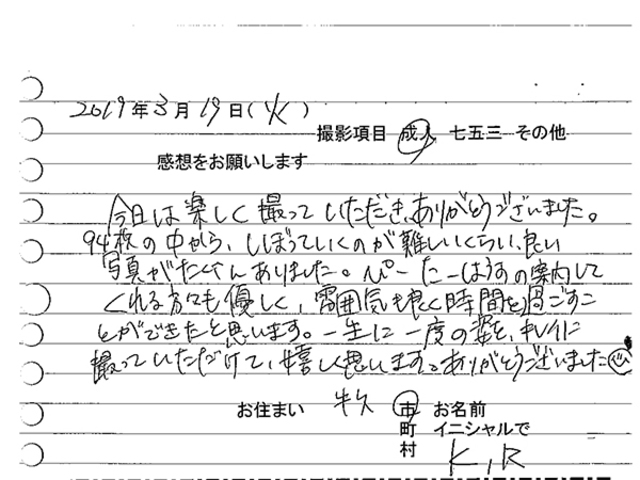 2019年3月19日(火)
撮影項目 成人 七五三 その他
感想をお願いします
今日は楽しく撮っていただき、ありがとうございました。
94枚の中から、しぼっていくのが難しいくらい、良い
写真がたくさんありました。ぴーたーはうすの案内して
くれる方々も優しく、雰囲気も良く時間を過ごすこ
とができたと思います。一生に一度の姿を、キレイに
撮っていただけて、嬉しく思います。ありがとうございました
お住まい 牛久 市 お名前
町 イニシャルで
村 K,R